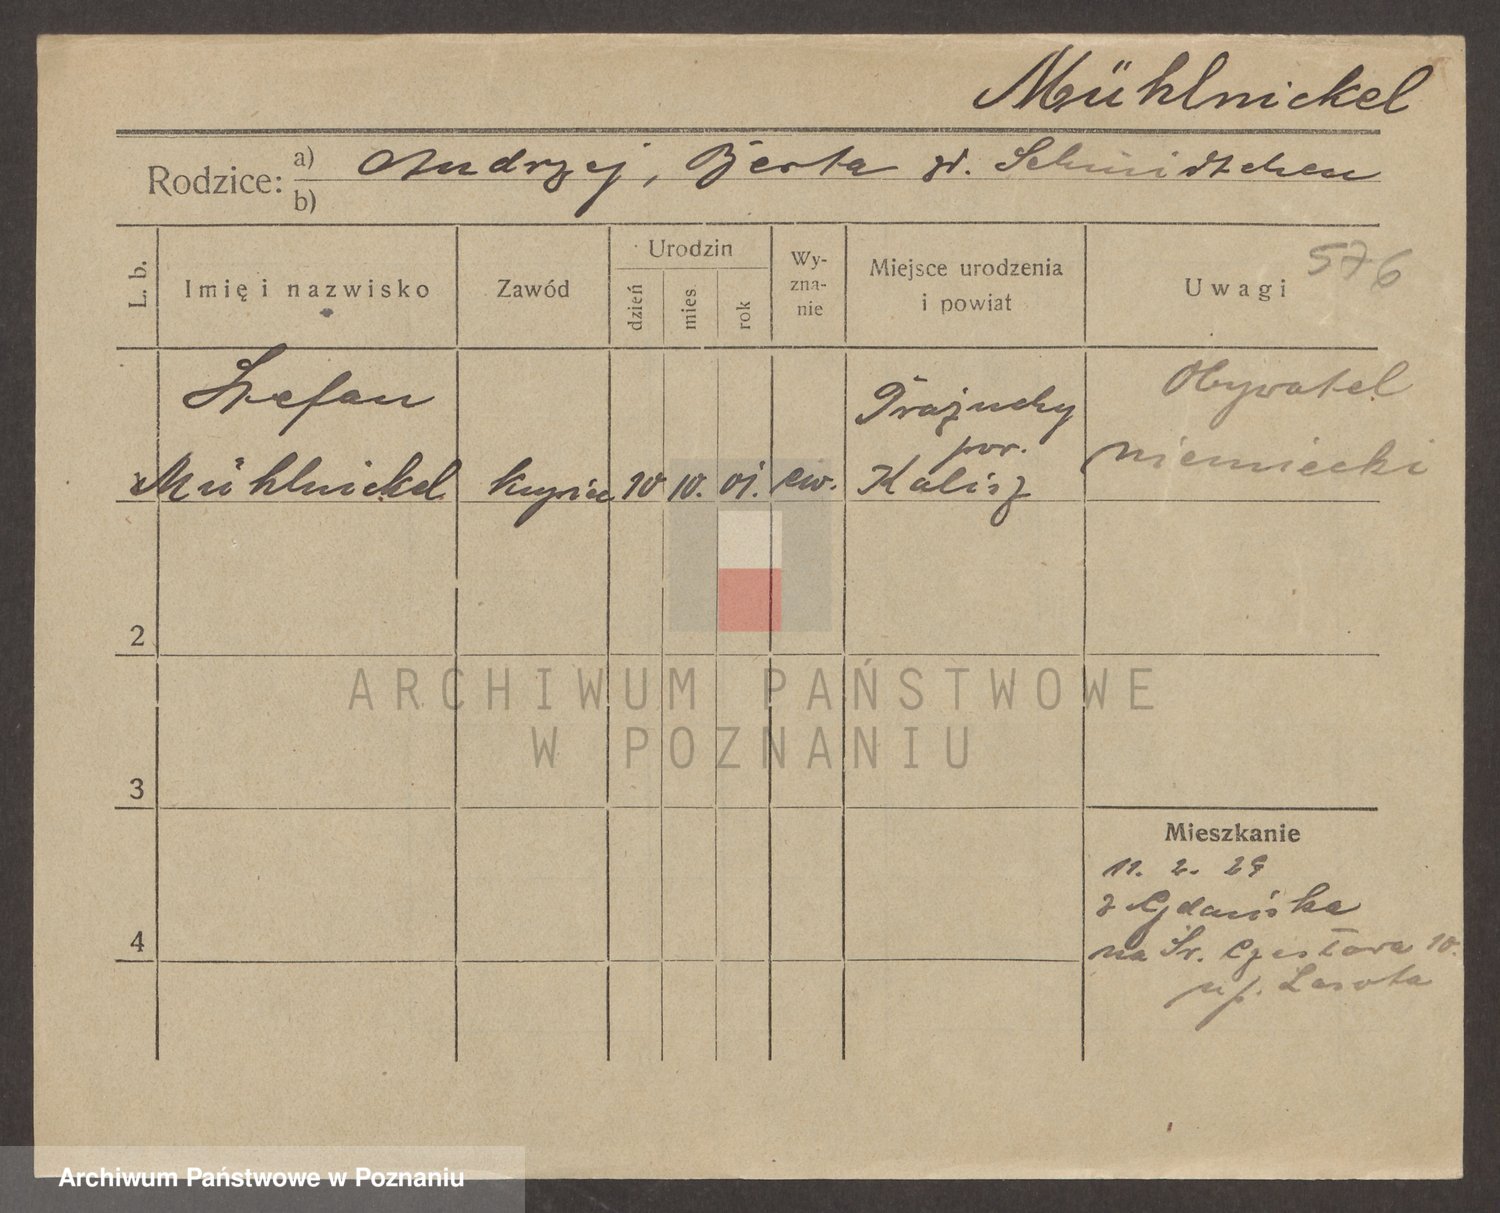 Mühlnickel
Rodzice: a) Andrzej, Berta zd. Schmidtchen
b)
576
L. b. Imię i nazwisko Zawód Urodzin dzień mies rok Wyznanie Miejsce urodzenia i powiat Uwagi
Stefan Prażuchy Obywatel
pow.
1 Mühlnickel kupiec 10 10. 01. ew. Kalisz niemiecki
2
ARCHIWUM PAŃSTWOWE
W POZNANIU
3
Mieszkanie
11. 2. 29
z Gdańska
4
na Św. Czesława 10.
u p. Lasota
Archiwum Państwowe w Poznaniu